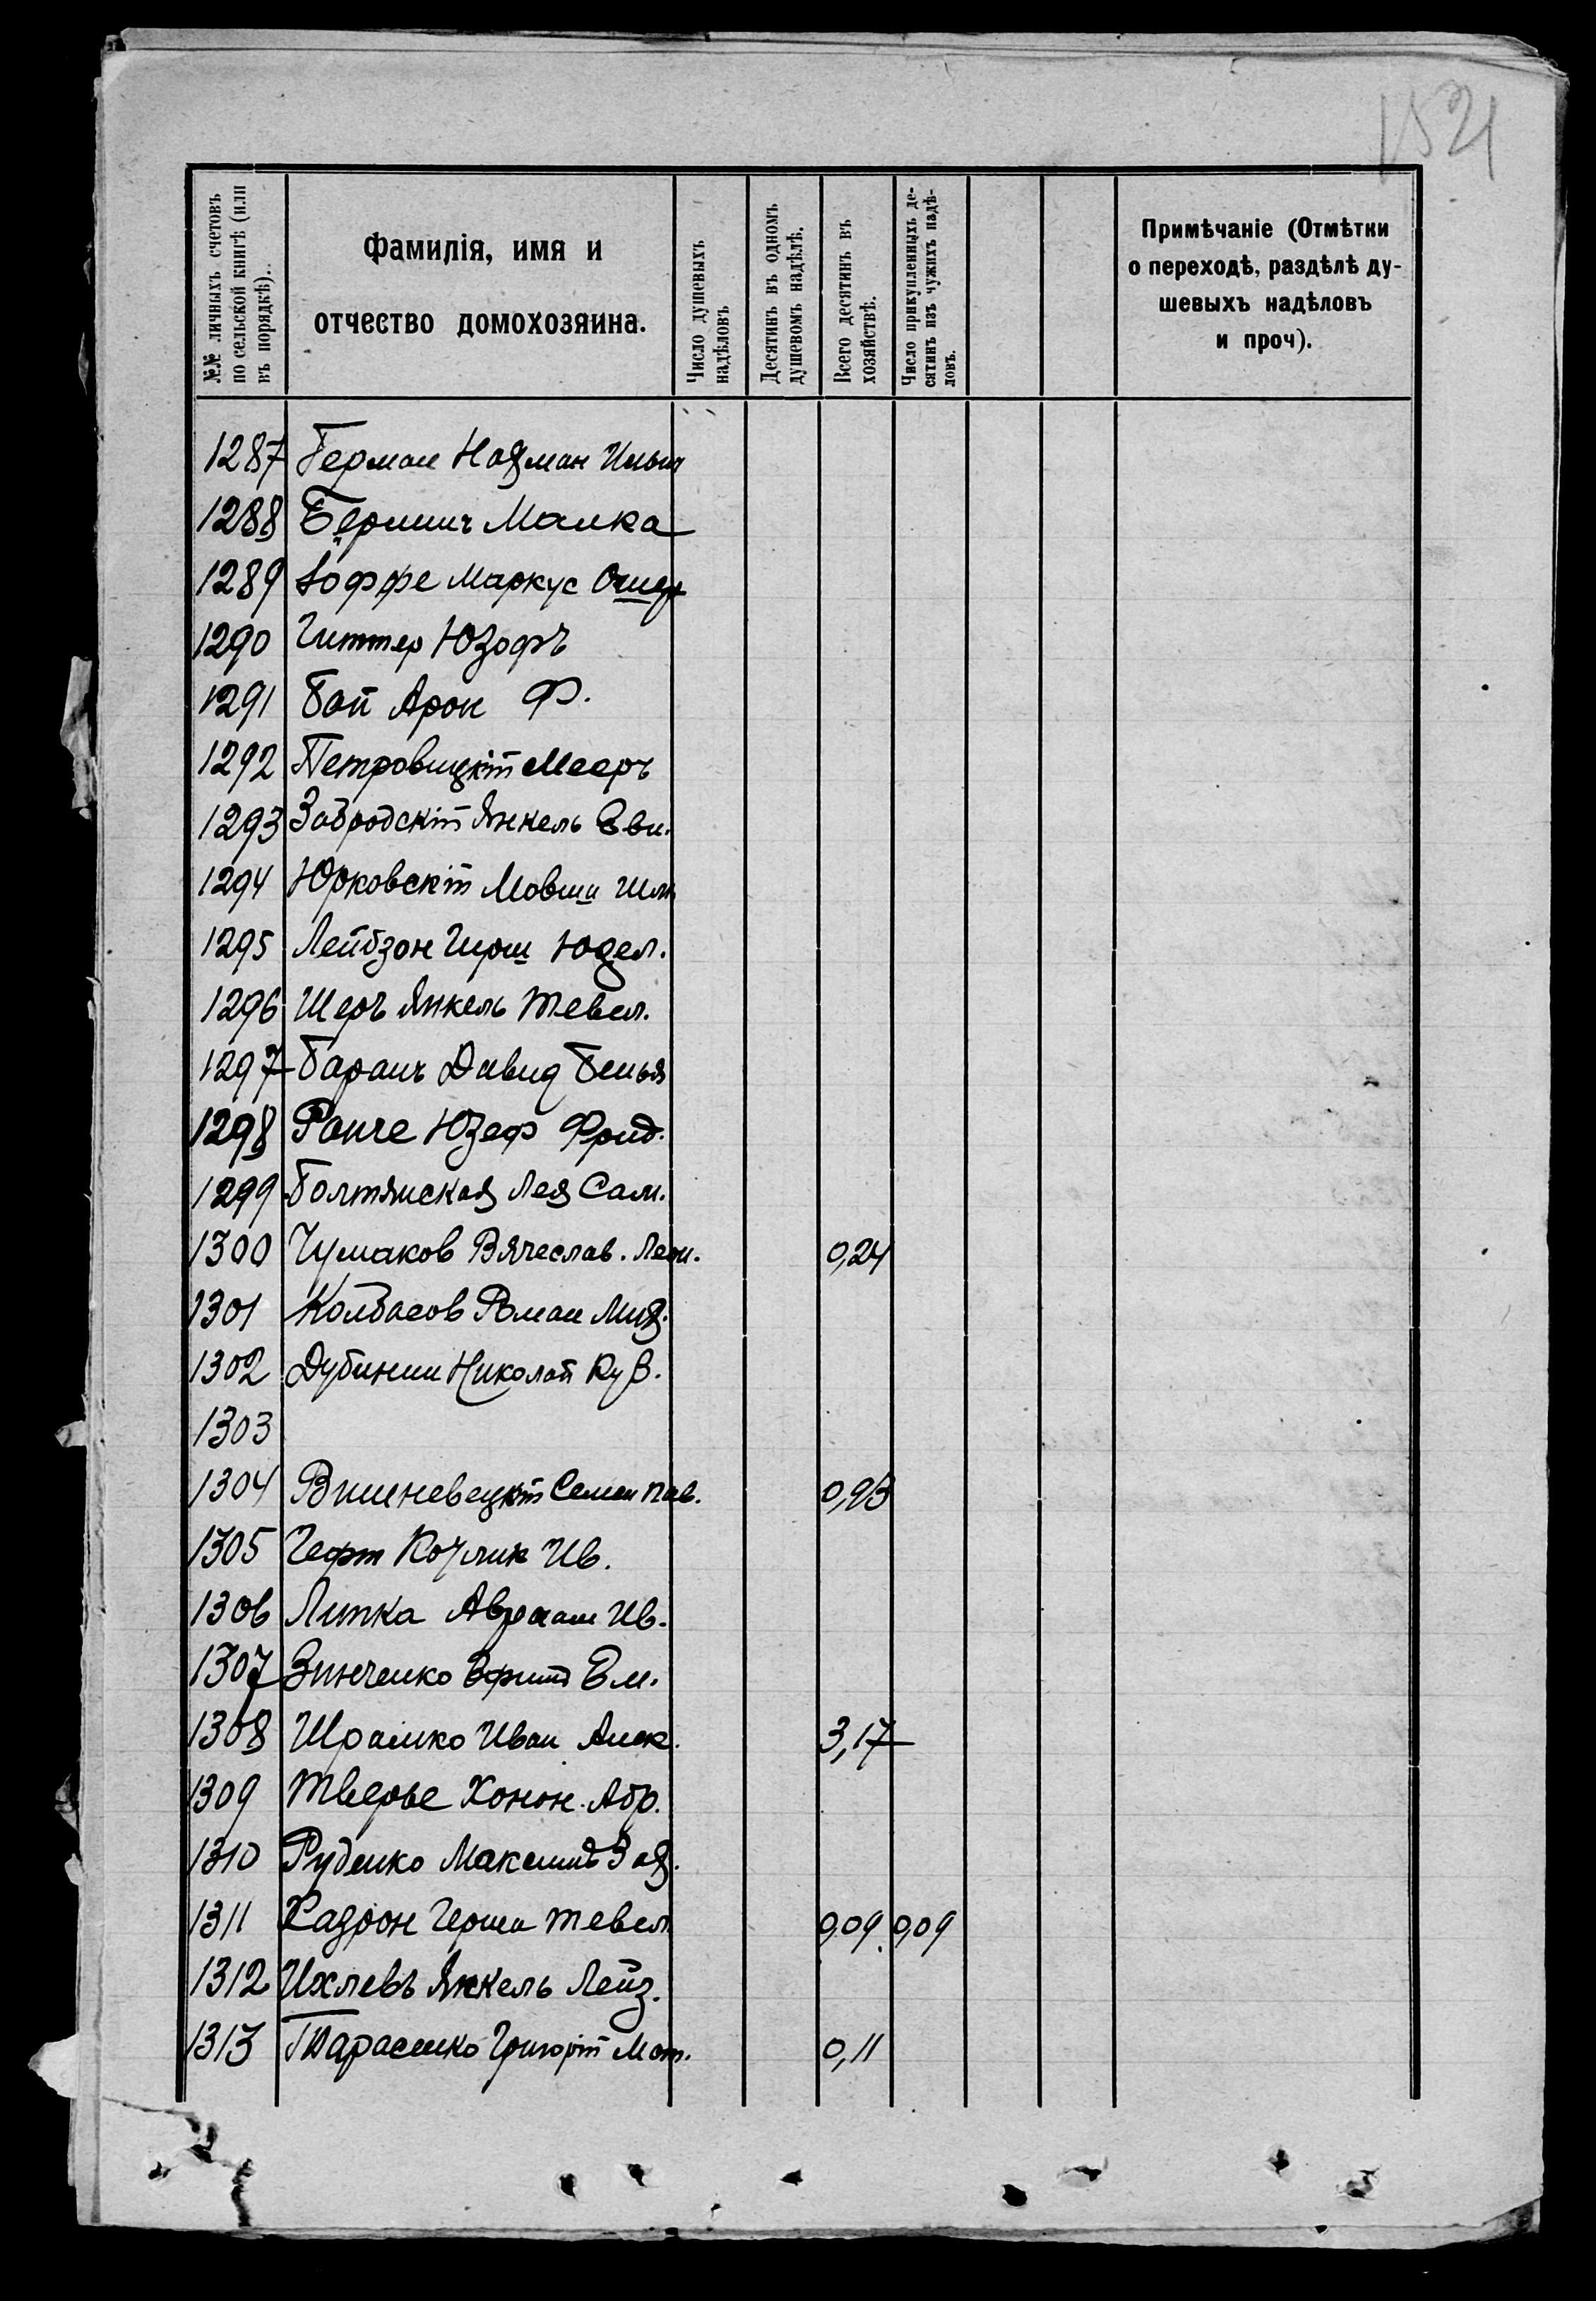 1521
№№ личныхъ счетовъ по сельской книгѣ (или въ порядкѣ).
Фамилія, имя и отчество домохозяина.
Число душевыхъ надѣловъ
Десятинъ въ одномъ душевомъ надѣлѣ.
Всего десятинъ въ хозяйствѣ.
Число прикупленныхъ десятинъ изъ чужихъ надѣловъ.
Примѣчаніе (Отмѣтки о переходѣ, раздѣлѣ душевыхъ надѣловъ и проч).
1287 Герман Нахман
1288 Малка
1289 Іоффе Маркус Ошер
1290 Гиттер Юзофъ
1291 Бай Арон Ф.
1292 Петровицкій Мееръ
1293 Забродскій Янкель
1294 Юрковскій Мовши
1295 Лейбзон Гирш Юдел.
1296 Шеръ Янкель Тевел.
1297 Давид
1298 Юзеф Фрид.
1299 Болтянская Лея Сам.
1300 Чумаков Вячеслав. Леон. 0,24
1301 Колбасов Роман Мих.
1302 Дубинин Николай
1303
1304 Вишневецкій Семен Пав. 0,93
1305 Ив.
1306 Липка Авраам Ив.
1307 Зинченко Ефим Ем.
1308 Шрамко Иван Алек. 3,17
1309 Тверье Хонон Абр.
1310 Руденко Максим Зах.
1311 Герш Тевел 0,09 0,09
1312 Ихлевъ Янкель Лейз.
1313 Тарасенко Григорій Мат. 0,11